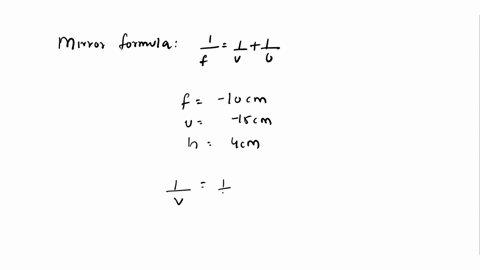 Mirror formula: 1/f = 1/v + 1/u
f = -10 cm
u = -15 cm
h = 4 cm
1/v = 1/